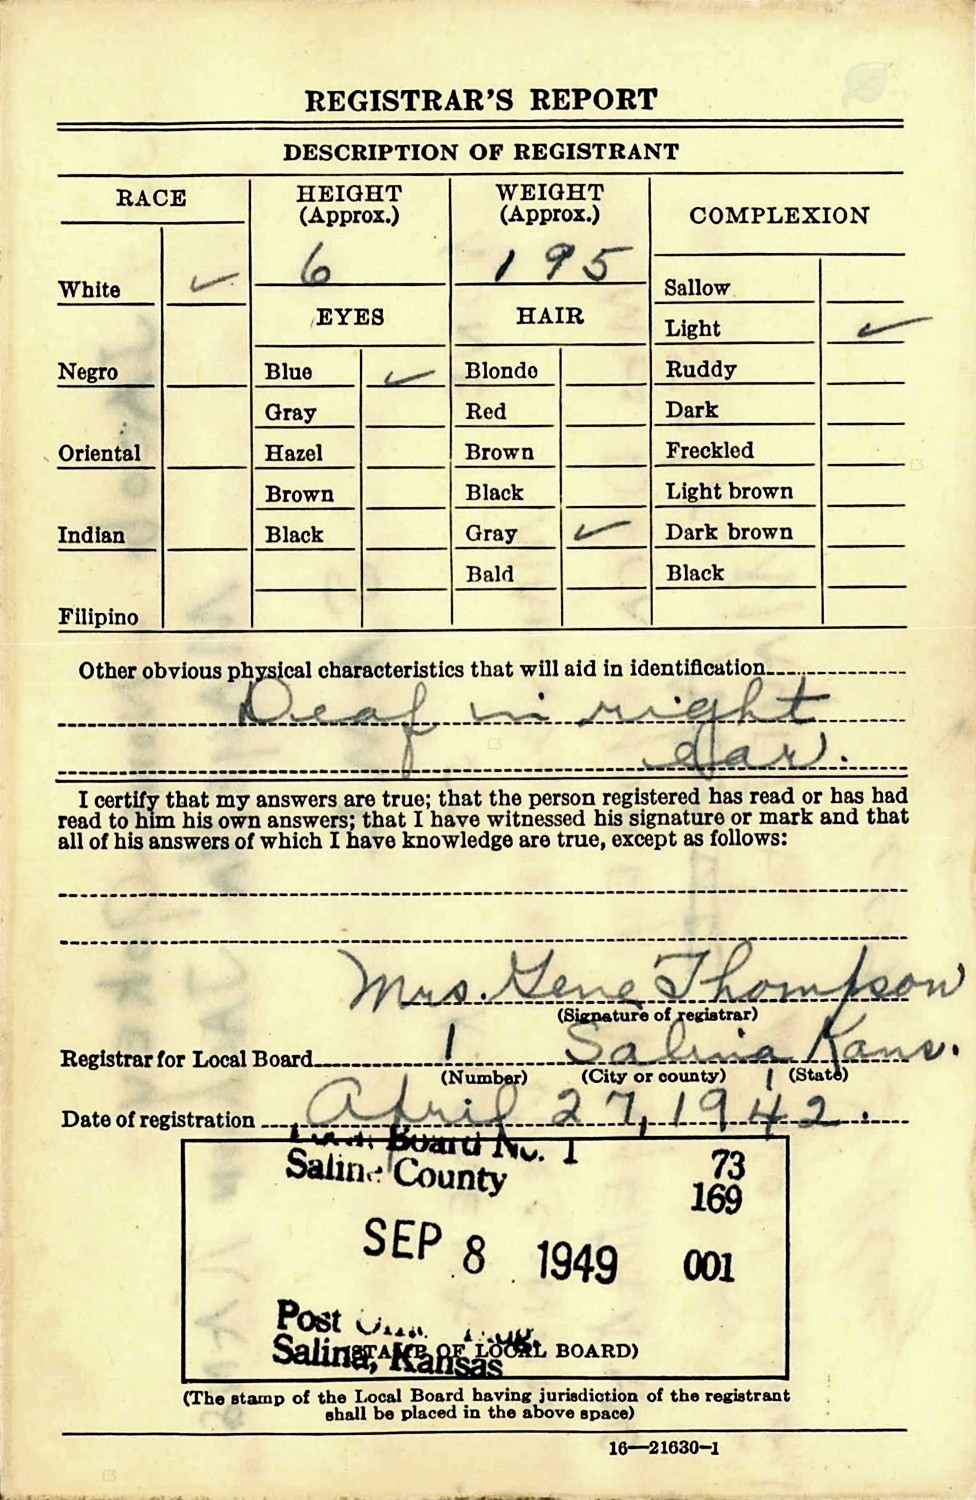 REGISTRAR'S REPORT
DESCRIPTION OF REGISTRANT
RACE
HEIGHT
(Approx.)
WEIGHT
(Approx.)
COMPLEXION
6
195
White ✓
Sallow
EYES
HAIR
Light ✓
Negro
Blue ✓
Blonde
Ruddy
Gray
Red
Dark
Oriental
Hazel
Brown
Freckled
Brown
Black
Light brown
Indian
Black
Gray ✓
Dark brown
Bald
Black
Filipino
Other obvious physical characteristics that will aid in identification
Deaf in right
ear.
I certify that my answers are true; that the person registered has read or has had
read to him his own answers; that I have witnessed his signature or mark and that
all of his answers of which I have knowledge are true, except as follows:
Mrs. Gene Thompson
(Signature of registrar)
Registrar for Local Board 1 Salina Kans.
(Number) (City or county) (State)
Date of registration April 27, 1942.
Board No. 1 73
Saline County
169
SEP 8 1949 001
Post
Salina, Kansas
(STAMP OF LOCAL BOARD)
(The stamp of the Local Board having jurisdiction of the registrant
shall be placed in the above space)
16—21630-1